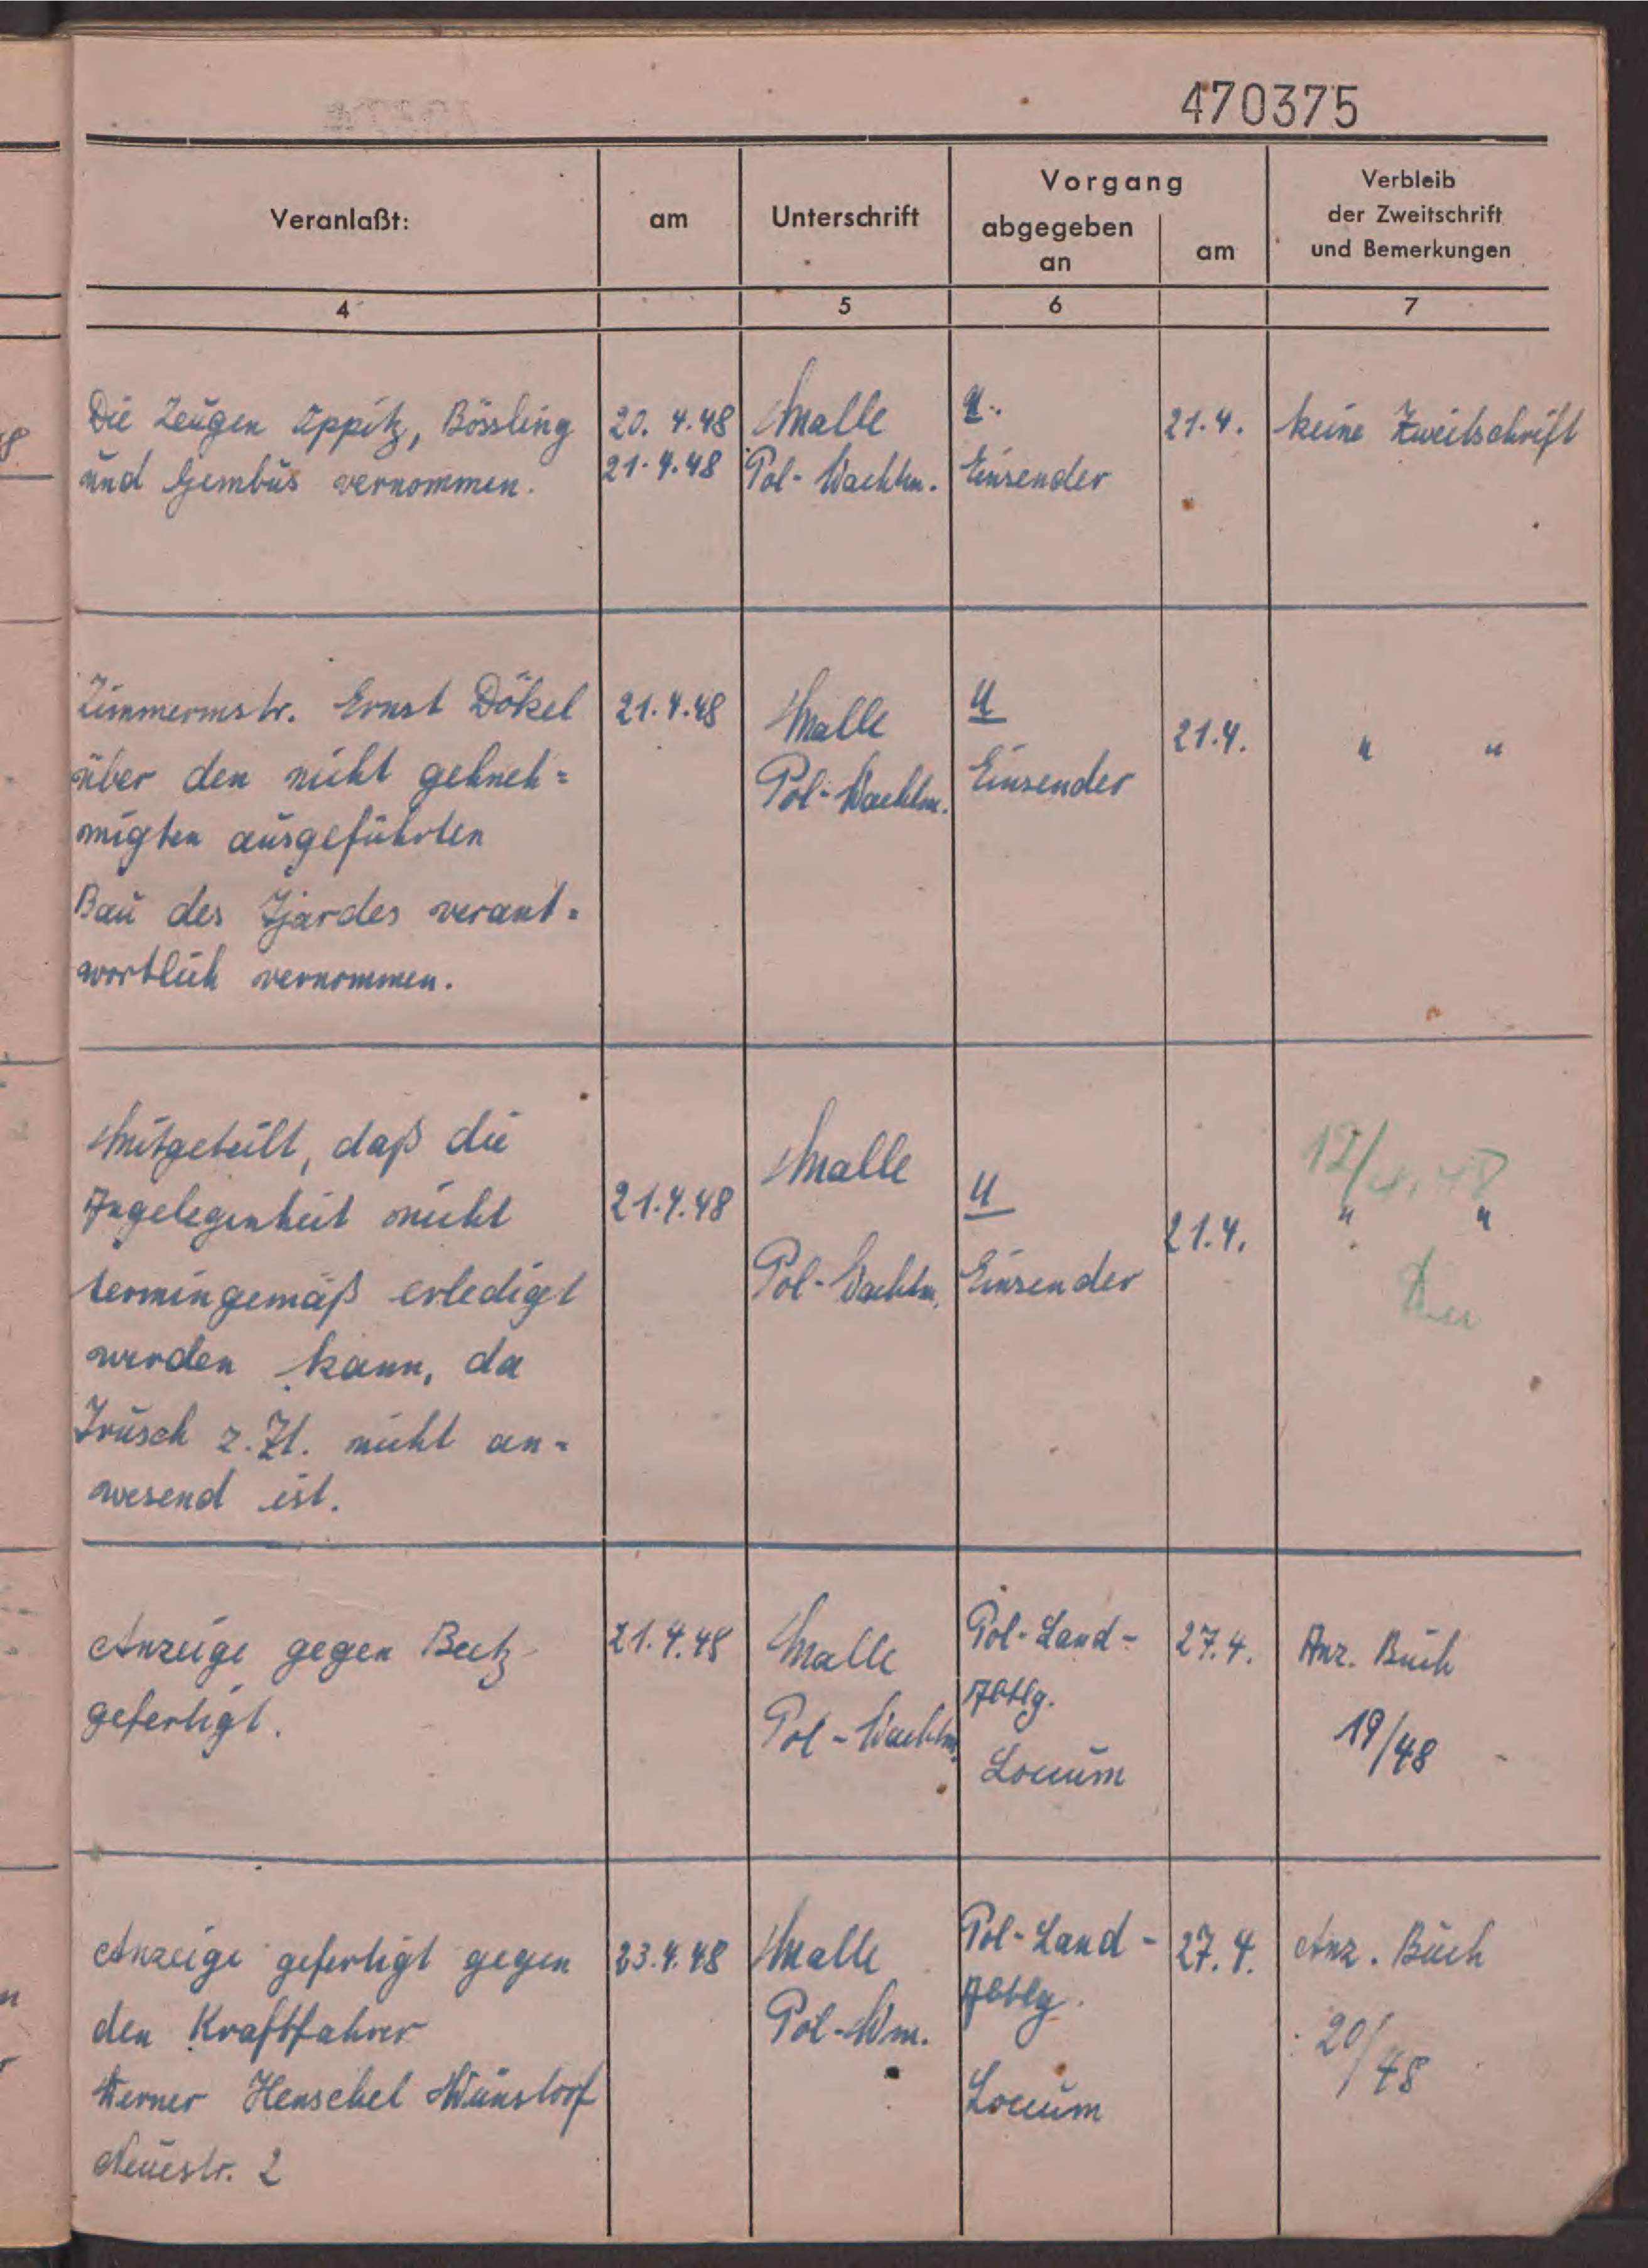 470375
Veranlaßt:
am
Unterschrift
Vorgang
abgegeben
an
am
Verbleib
der Zweitschrift
und Bemerkungen
4
5
6
7
Die Zeugen Ippitz, Bössling
und Gembus vernommen.
20. 4.48
21.4.48
Malle
Pol-Wachtm.
U.
Einsender
21.4.
keine Zweitschrift
Zimmermstr. Ernst Dökel
über den nicht gehneh=
migten ausgeführten
Bau des Tjardes verant=
wortlich vernommen.
21.4.48
Malle
Pol-Wachtm.
U
Einsender
21.4.
" "
Mitgeteilt, daß die
Angelegenheit nicht
termingemäß erledigt
werden kann, da
Irusch z. Zt. nicht an=
wesend ist.
21.4.48
Malle
Pol-Wachtm.
U
Einsender
21.4.
12/4.48
" "
Anzeige gegen Beetz
gefertigt.
21.4.48
Malle
Pol-Wachtm.
Pol-Land-
Abtlg.
Loccum
27.4.
Anz. Buch
19/48
Anzeige gefertigt gegen
den Kraftfahrer
Werner Henschel Wunstorf
Neuestr. 2
23.4.48
Malle
Pol-Wm.
Pol-Land-
Abtlg.
Loccum
27.4.
Anz. Buch
20/48